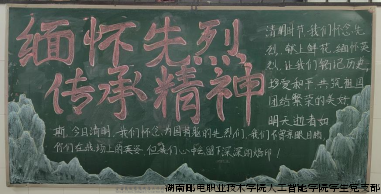 缅怀先烈
传承精神
清明节,我们怀念先
烈,献上鲜花,缅怀英
烈,让我们铭记历史,
珍爱和平共筑祖国
团结繁荣的美好
明天逝者如
斯,今日清明,我们怀念为国捐躯的先烈们,我们不曾亲眼目睹
他们在战场上的英姿,但我们心中却留下深深的烙印!
湖南邮电职业技术学院人工智能学院学生党支部